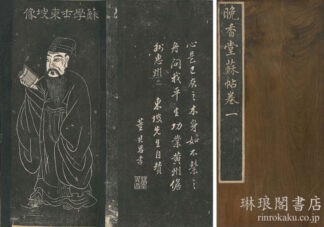 蘇學士東坡像
心是已灰之木身如不繫之
舟問我平生功業黃州儋
州惠州 東坡先生自贊
董其昌書
晚香堂蘇帖卷一
琳琅閣書店
rinrokaku.co.jp